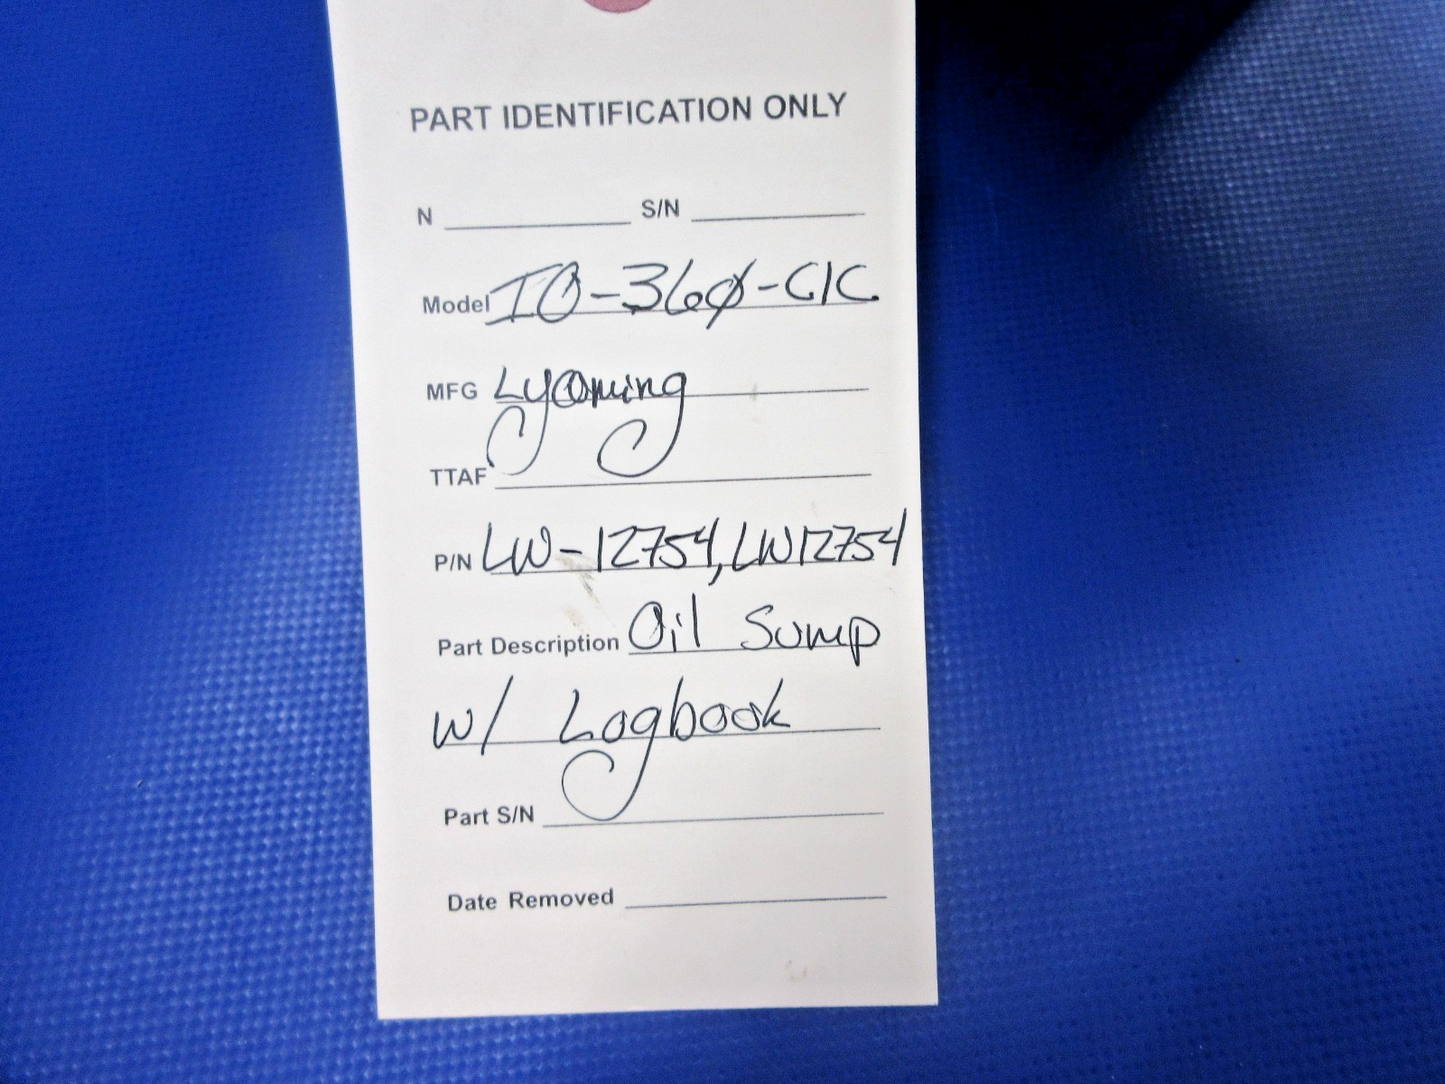 PART IDENTIFICATION ONLY
N S/N
Model IO-360-C1C
MFG Lyoming
TTAF
P/N LW-12754, LW12754
Part Description Oil Sump
w/ Logbook
Part S/N
Date Removed